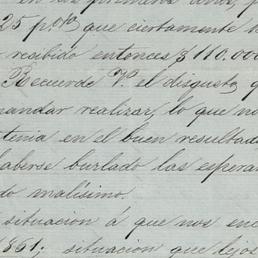 en los primeros años, p
25 p.% que ciertamente h
recibido entonces $ 110.000
Recuerde V. el disgusto q
mandar realizar, lo que no
tenia en el buen resultad
aberse burlado las espera
do malísimo.
situacion á que nos en
861; situacion que lejos